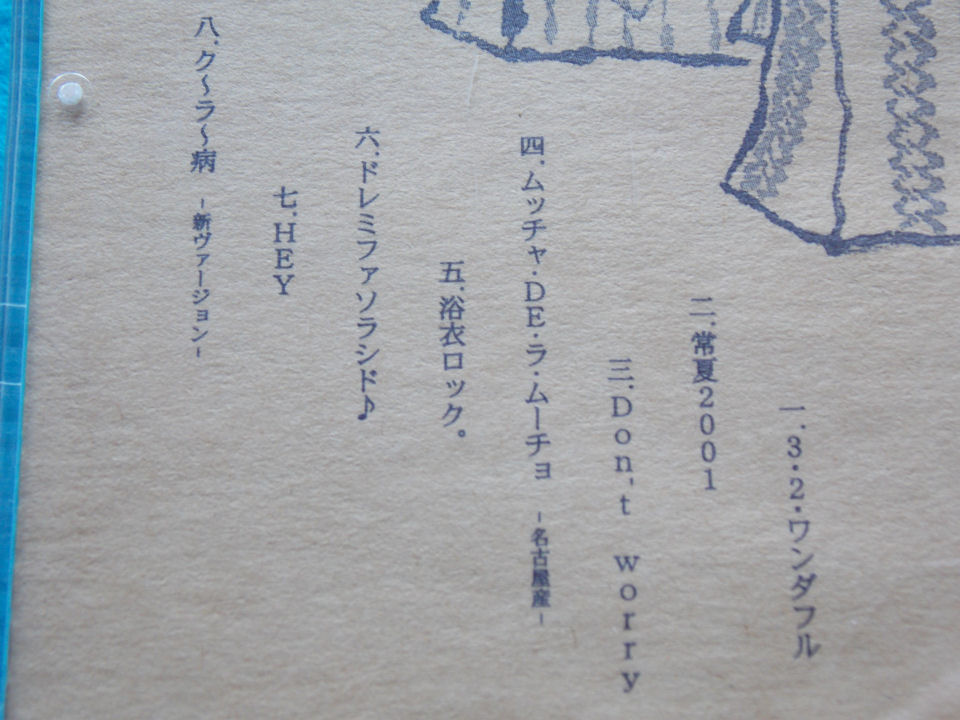 一.3・2・ワンダフル
二.常夏2001
三.Don't worry
四.ムッチャ・DE・ラ・ムーチョ -名古屋産-
五.浴衣ロック。
六.ドレミファソラシド♪
七.HEY
八.ク〜ラ〜病 -新ヴァージョン-